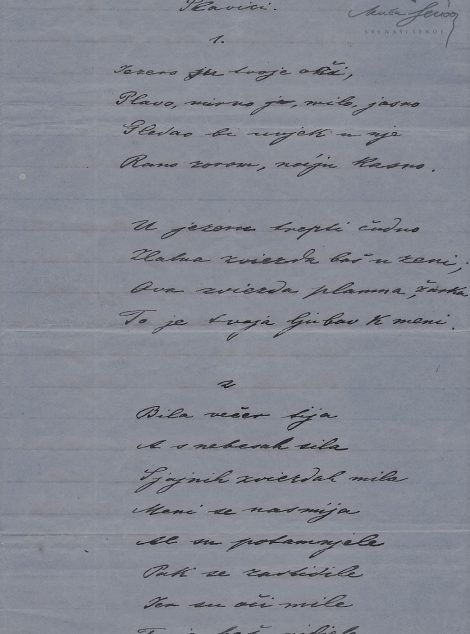 Plavici.
1.
Jezero je tvoje oko,
Plavo, mirno je, milo, jasno
Gledao bi uvjek u nje
Rano zorom, noćju kasno.
U jezeru trepti čudno
Zlatna zviezda baš u zeni,
Ova zviezda plamna, žarka
To je tvoja ljubav k meni.
2
Bila večer tija
A s nebesah sila
Sjajnih zviezdah mila
Meni se nasmija
Al su potamnjele
Pak se zastidile
Jer su oči mile